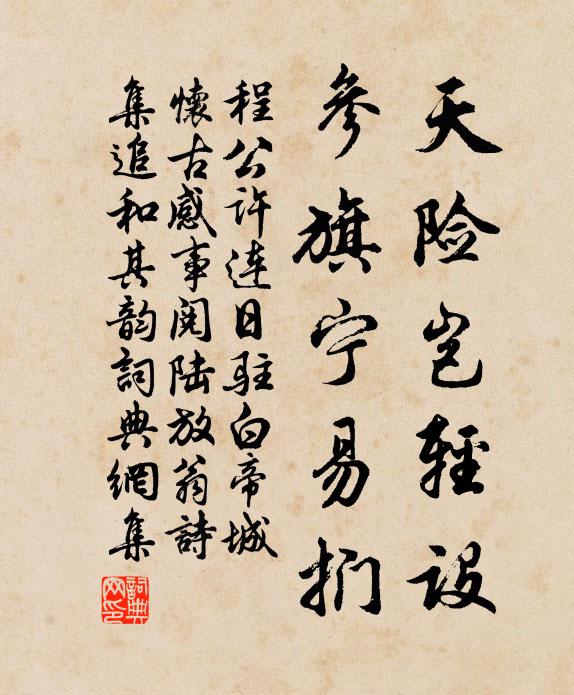 天险岂轻设
参旗宁易扪
程公许连日驻白帝城
懷古感事阅陆放翁詩
集追和其韵詞典網集
詞典
网印